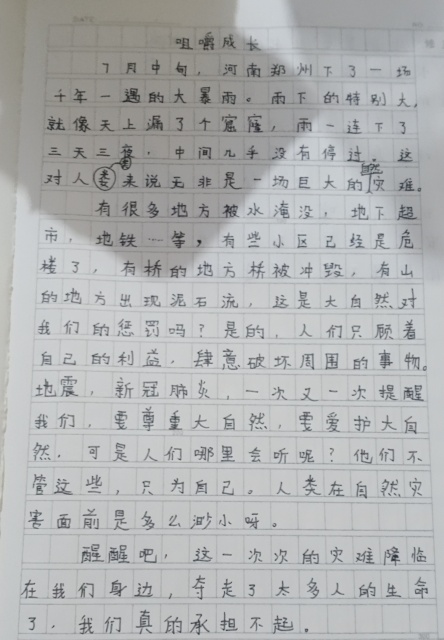 咀嚼成长
7月中旬，河南郑州下了一场
千年一遇的大暴雨。雨下的特别大，
就像天上漏了个窟窿，雨一连下了
三天三夜，中间几乎没有停过。这
对人类来说无非是一场巨大的自然灾难。
有很多地方被水淹没，地下超
市，地铁…等，有些小区已经是危
楼了，有桥的地方桥被冲毁，有山
的地方出现泥石流，这是大自然对
我们的惩罚吗？是的，人们只顾着
自己的利益，肆意破坏周围的事物。
地震，新冠肺炎，一次又一次提醒
我们，要尊重大自然，要爱护大自
然．可是人们哪里会听呢？他们不
管这些，只为自己。人类在自然灾
害面前是多么渺小呀。
醒醒吧，这一次次的灾难降临
在我们身边，夺走了太多人的生命
了．我们真的承担不起。